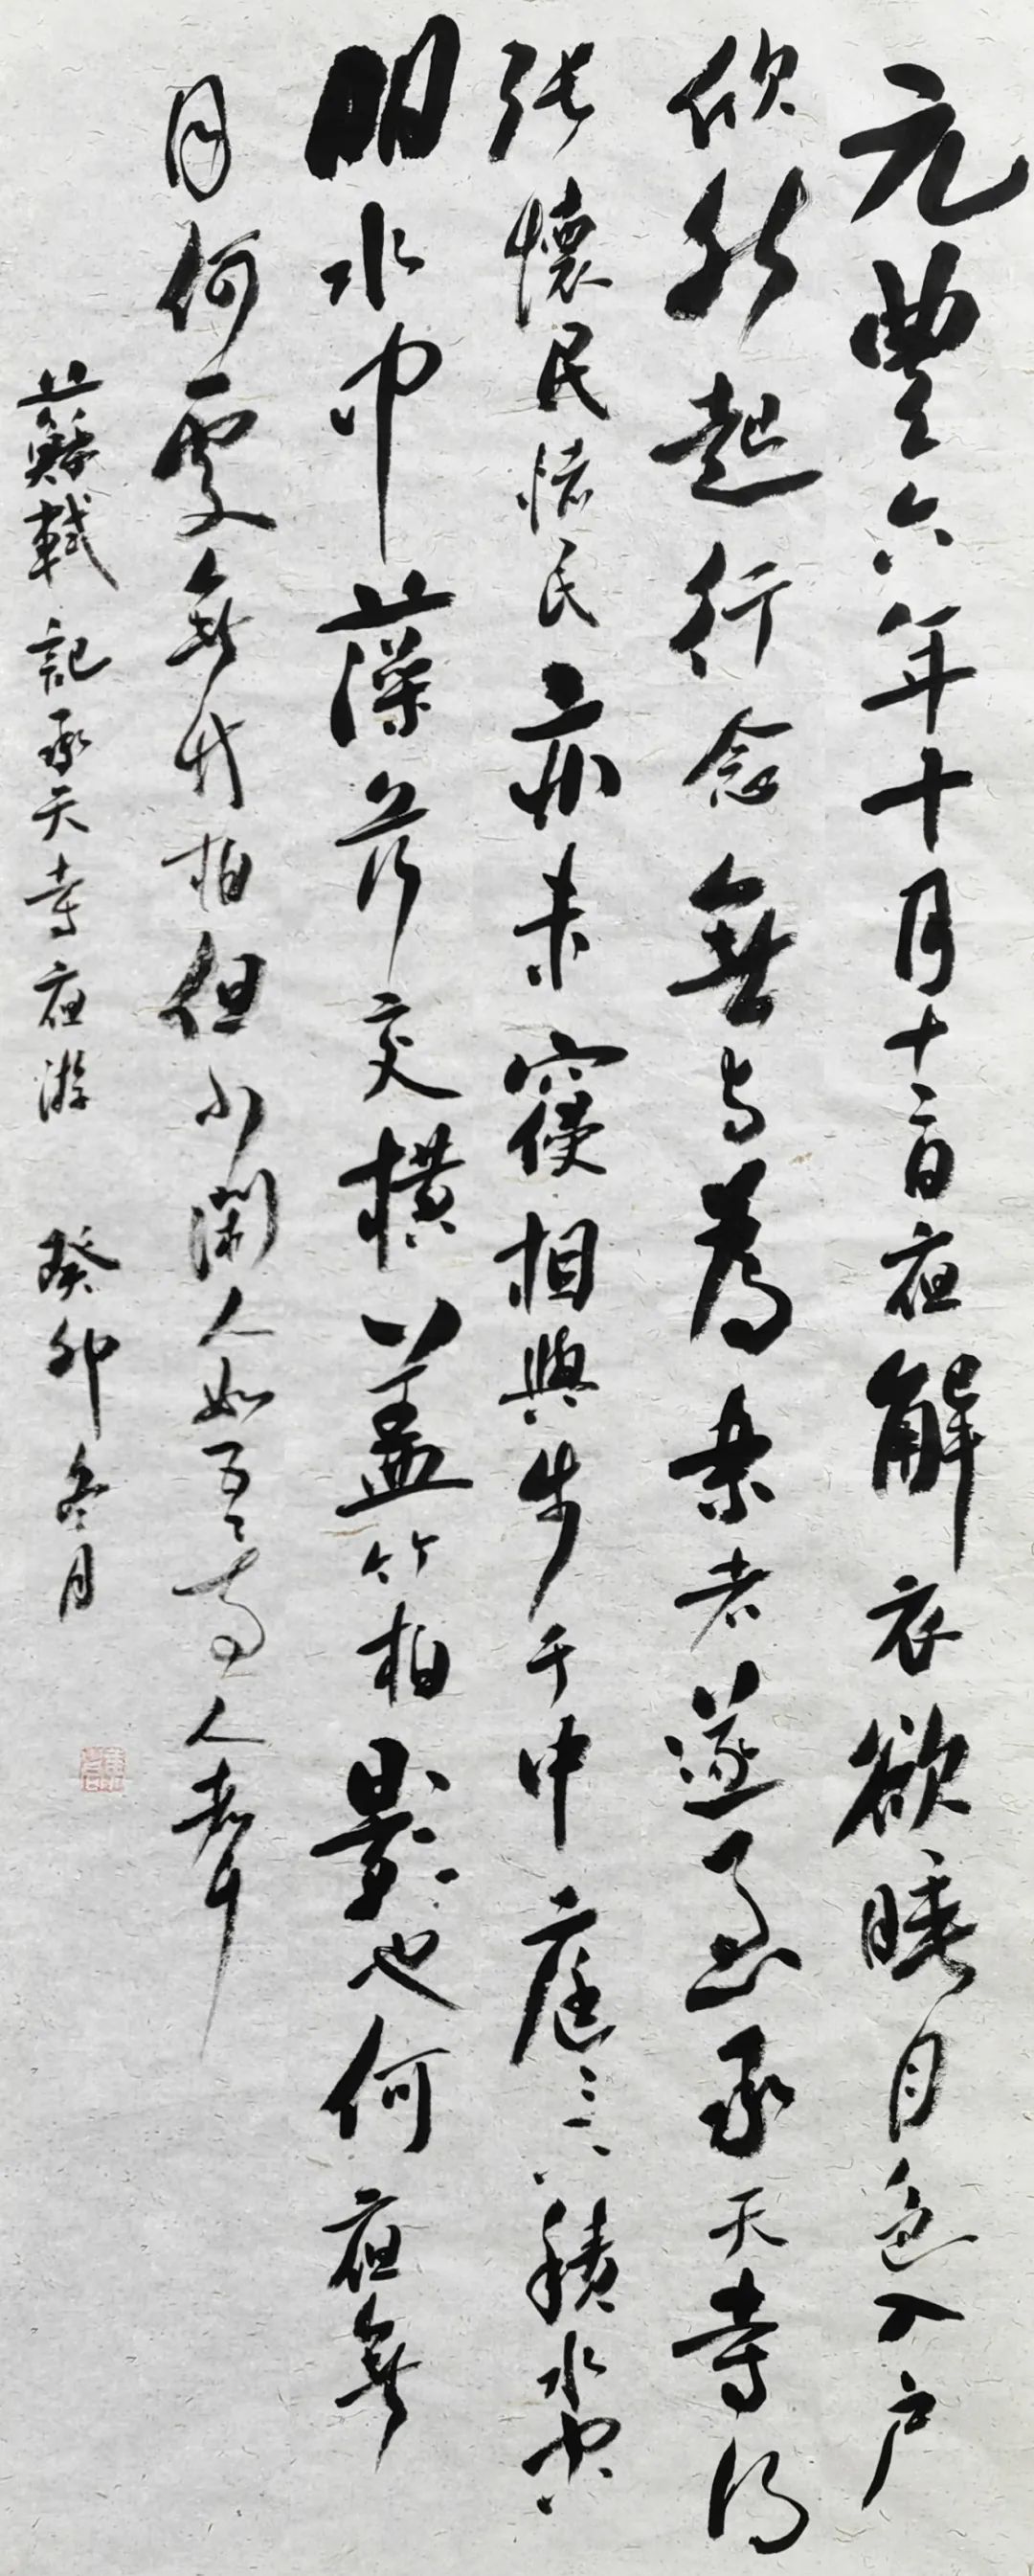 元豐六年十月十二日夜解衣欲睡月色入户
欣然起行念無与為樂者遂至承天寺尋
張懷民懷民亦未寢相與步于中庭〻下積水空
明水中藻荇交橫蓋竹柏影也何夜無
月何處無竹柏但少閑人如吾兩人者耳
蘇軾記承天寺夜游 癸卯冬月